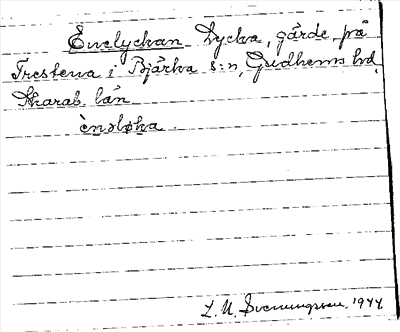 Enelyckan Lycka, gärde på
Trestena i Bjärka s:n, Gudhems hd,
Skarab. län
ènəlyka.
L. M. Svenungsson. 1944